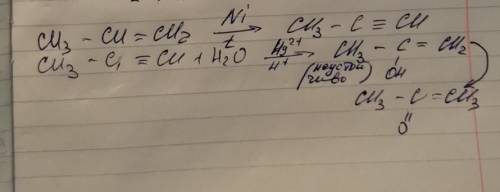 CH₃ - CH = CH₂ Ni t → CH₃ - C ≡ CH
CH₃ - C ≡ CH + H₂O Hg²⁺ H⁺ → CH₃ - C = CH₂
(неустойчиво) OH
CH₃ - C = CH₃
O